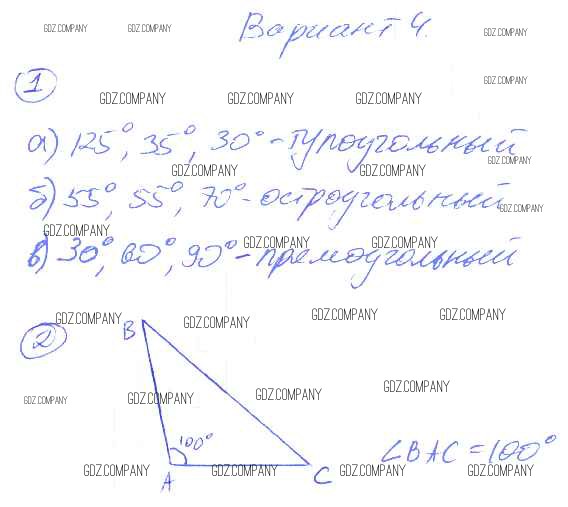 GDZ.COMPANY GDZ.COMPANY Вариант 4. GDZ.COMPANY
1 GDZ.COMPANY
GDZ.COMPANY GDZ.COMPANY GDZ.COMPANY
а) 125°, 35°, 30° - тупоугольный
GDZ.COMPANY GDZ.COMPANY GDZ.COMPANY
б) 55°, 55°, 70° - остроугольный
GDZ.COMPANY GDZ.COMPANY
GDZ.COMPANY GDZ.COMPANY
в) 30°, 60°, 90° - прямоугольный
GDZ.COMPANY GDZ.COMPANY GDZ.COMPANY GDZ.COMPANY
2 B
GDZ.COMPANY GDZ.COMPANY GDZ.COMPANY GDZ.COMPANY
100° ∠BAC = 100°
GDZ.COMPANY GDZ.COMPANY GDZ.COMPANY GDZ.COMPANY
A C